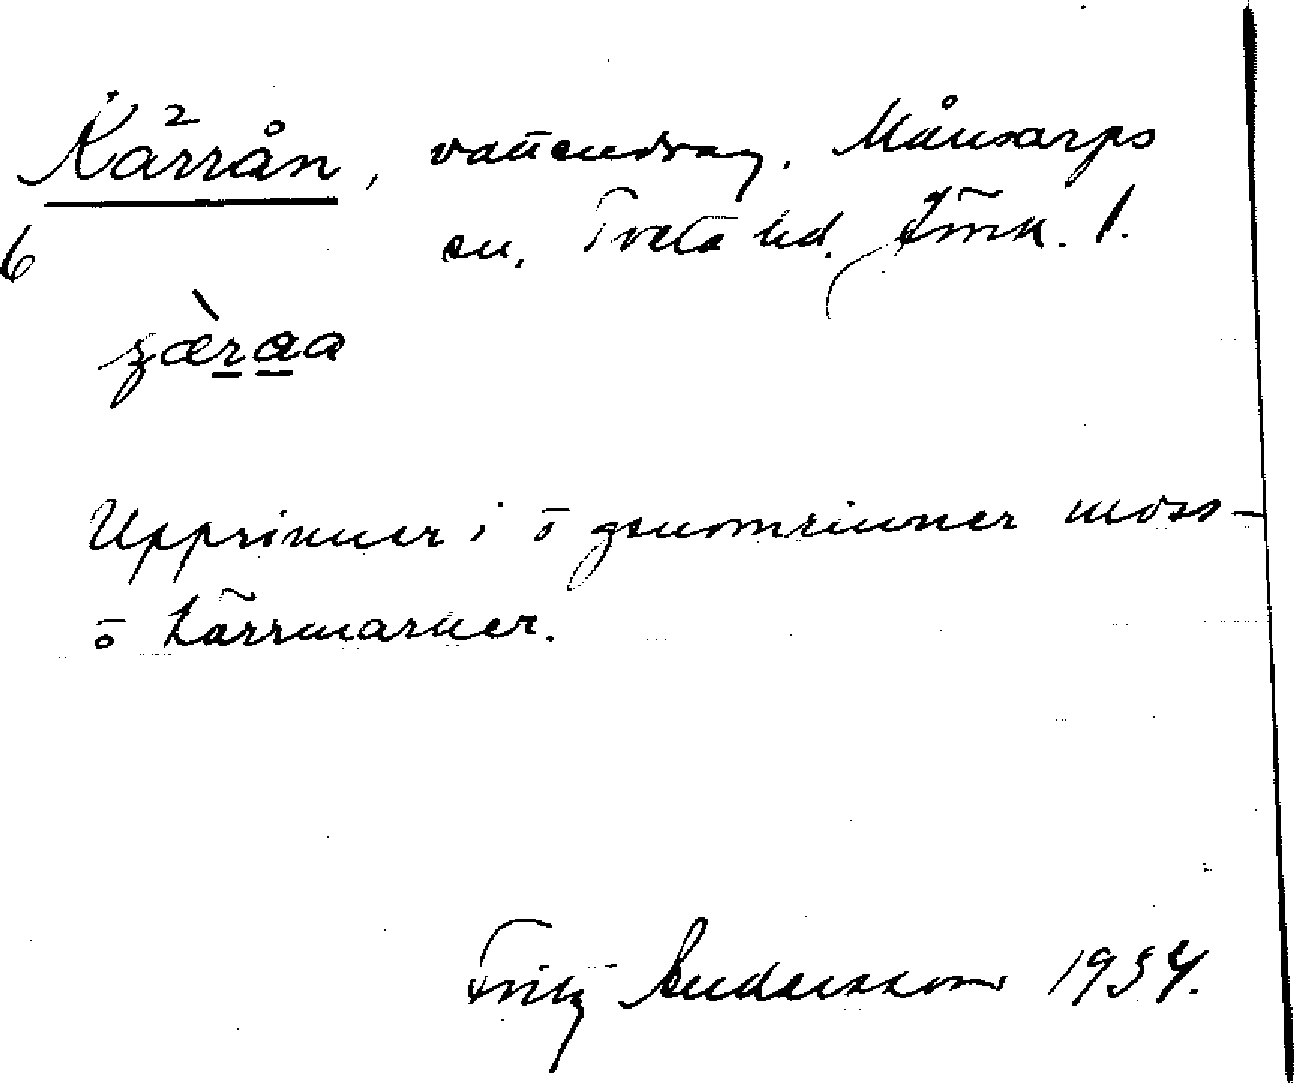 2
Kärrån, vattendrag. Månsarps
sn. Tveta hd. Jönk. l.
6
Upprinner i o genomrinner moss-
o kärrmarker.
Fritz Andersson 1934.